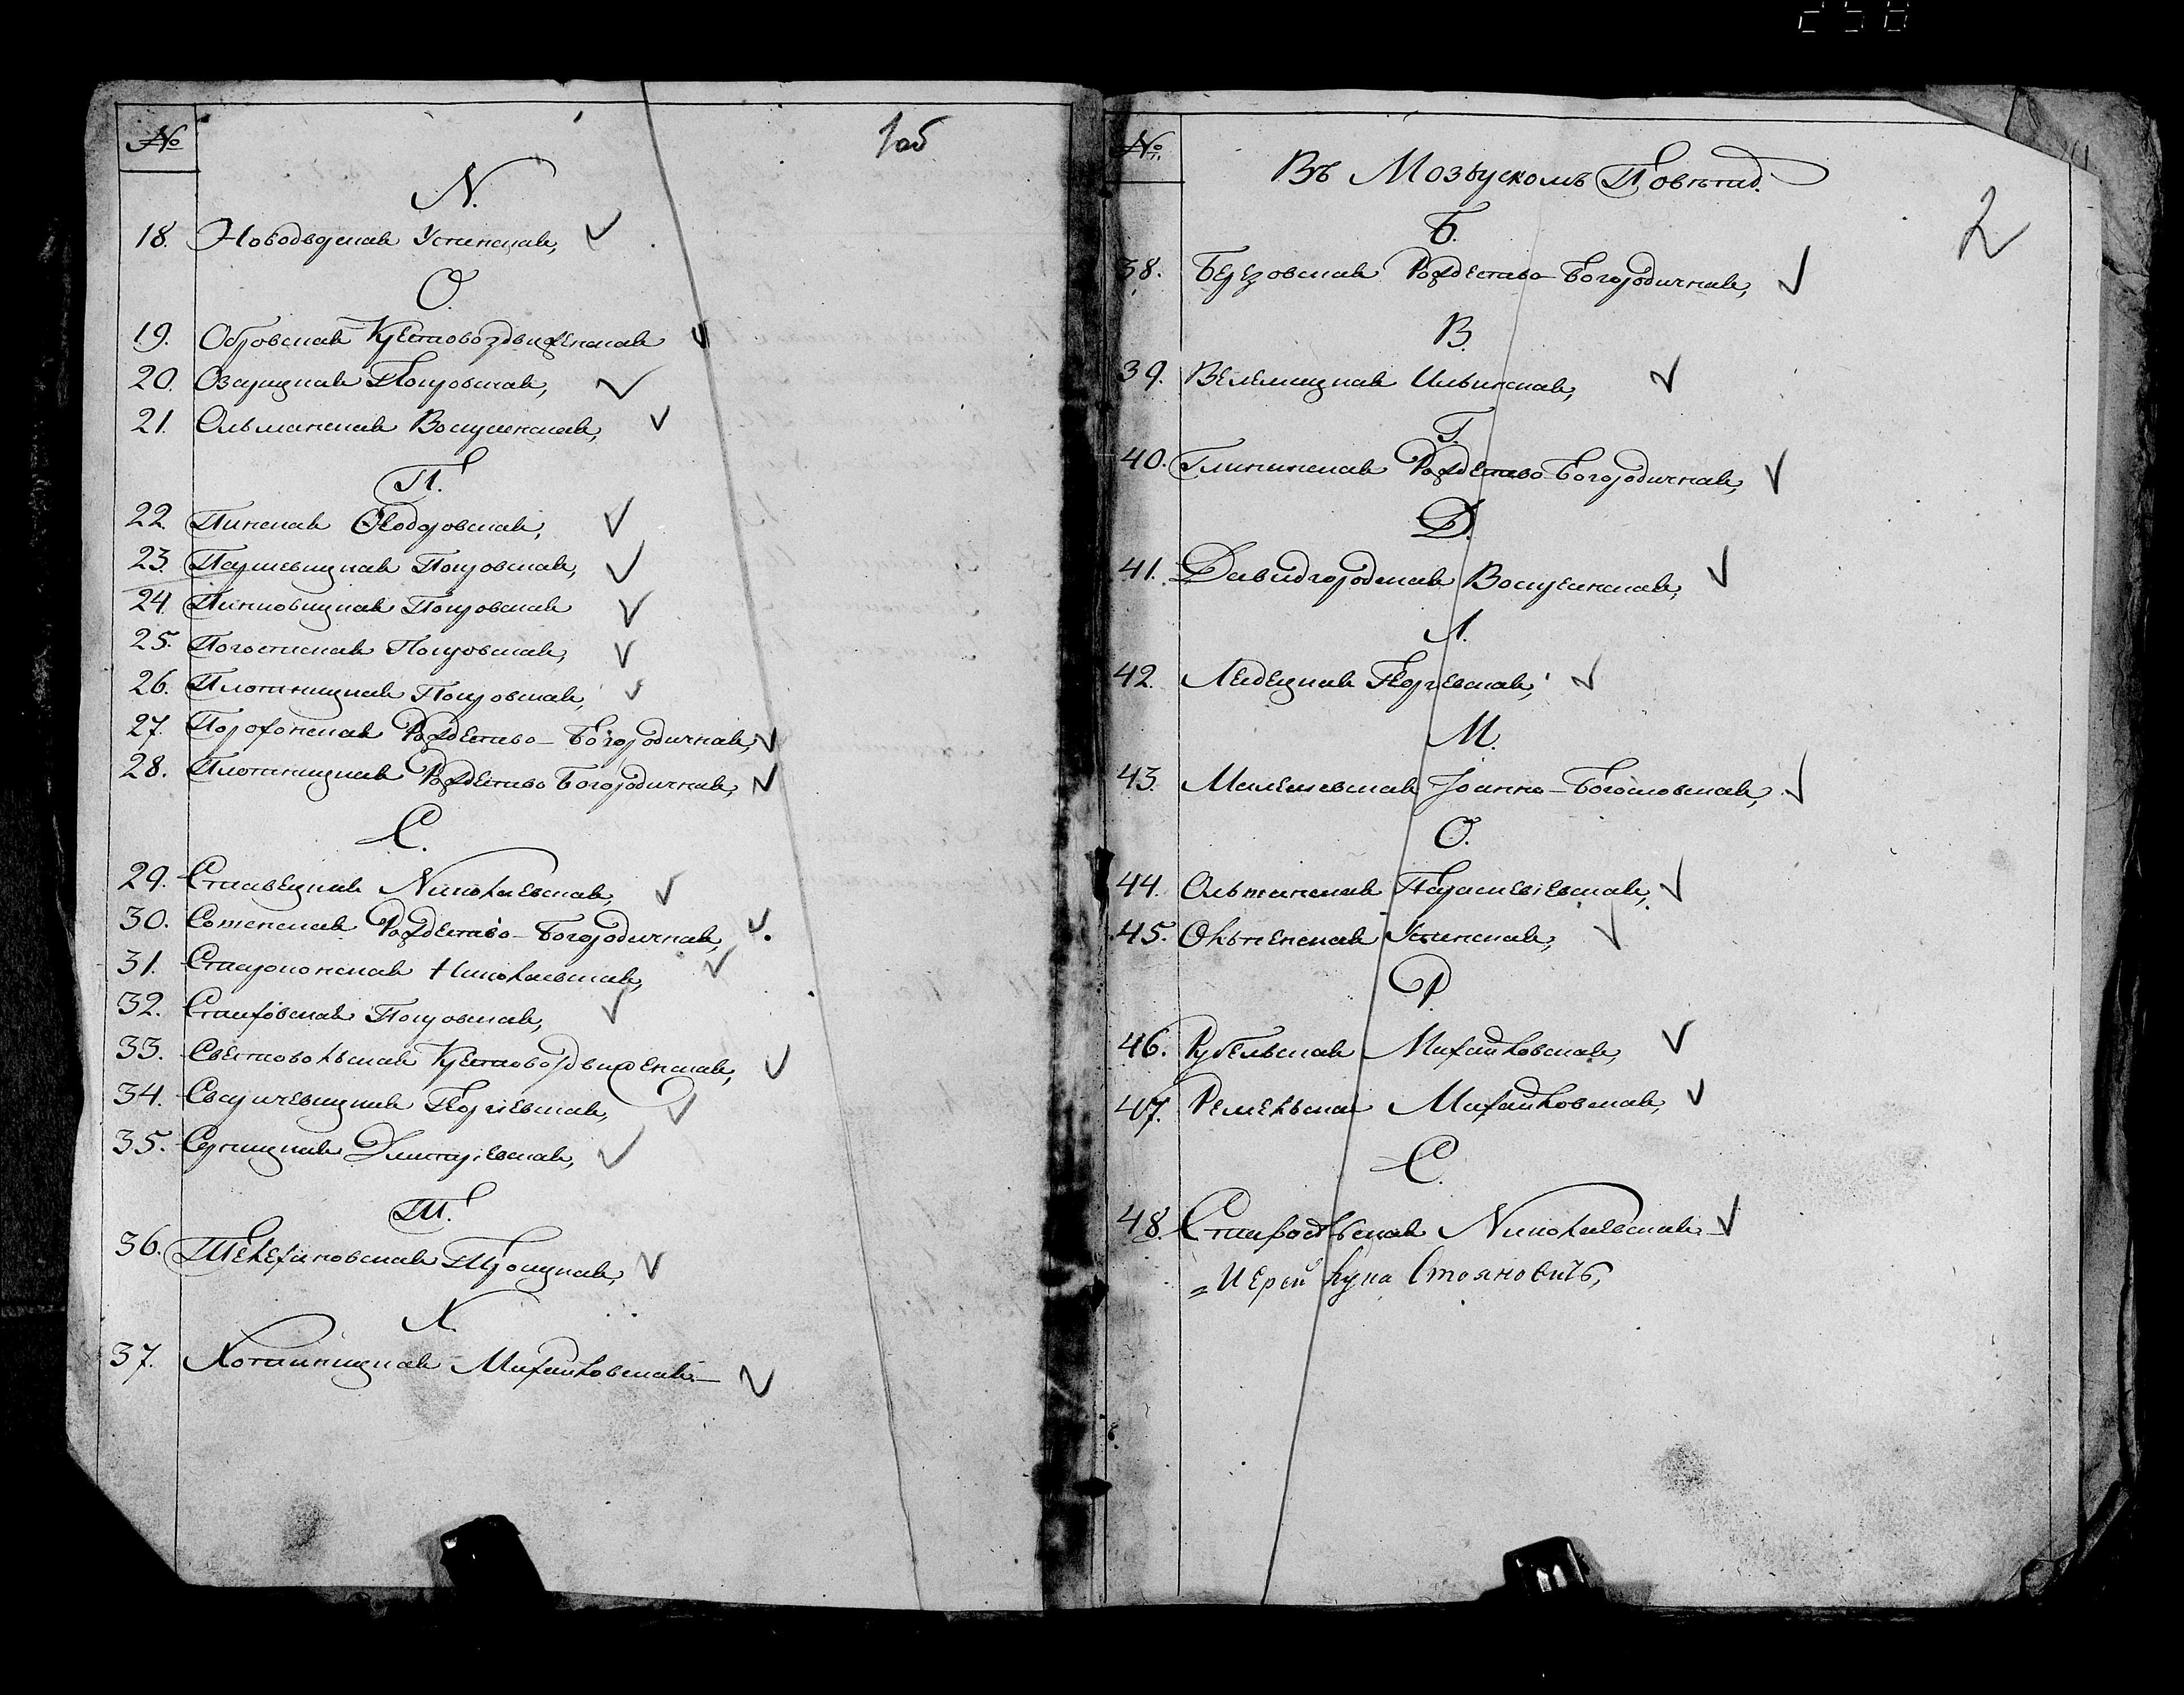 258
1об
№
N.
18. Новодворская Успенская,
О.
19. Обровская Крестовоздвиженская
20. Озарицкая Покровская,
21. Ольманская Воскресенская,
П.
22. Пинская Ѳеодоровская,
23. Паршевицкая Покровская,
24. Пинковицкая Покровская
25. Погостская Покровская,
26. Плотницкая Покровская,
27. Порохонская Рождество-Богородичная,
28. Плотницкая Рождество Богородичная,
С.
29. Ставецкая Николаевская,
30. Сошенская Рождество-Богородичная,
31. Стауроконская Николаевская,
32. Стаховская Покровская,
33. Святовольская Крестовоздвиженская,
34. Сварицевицкая Георгіевская,
35. Серницкая Димитріевская,
Т.
36. Телехановская Троицкая,
Х.
37. Хотыницкая Михайловская.
2
№.
Въ Мозѣрскомъ Повѣтѣ.
Б.
38. Березовская Рождество-Богородичная,
В.
39. Велемицкая Ильинская,
Г.
40. Глинкинская Рождество-Богородичная,
Д.
41. Давидгородская Воскресенская,
Л.
42. Ледецкая Георгіевская,
М.
43. Малешевская Іоанно-Богословская,
О.
44. Ольшанская Параскевіевская,
45. Ольпенская Успенская,
Р.
46. Рубельская Михайловская,
47. Ремельская Михайловская,
С.
48. Стахосельская Николаевская.
= Иерей Лука Стояновичъ,